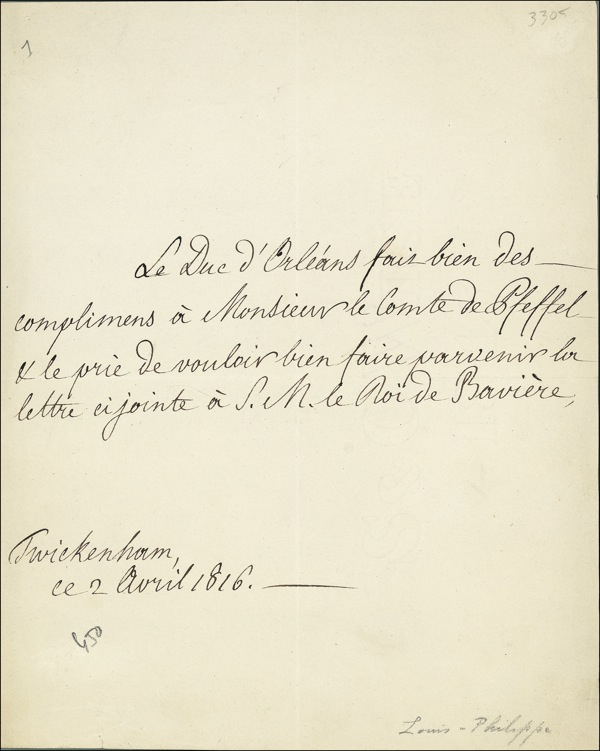 1
3305
Le Duc d'Orléans fait bien des
complimens à Monsieur le Comte de Pfeffel
& le prie de vouloir bien faire parvenir la
lettre cijointe à S. M. le Roi de Bavière,
Twickenham,
ce 2 Avril 1816.
450
Louis-Philippe